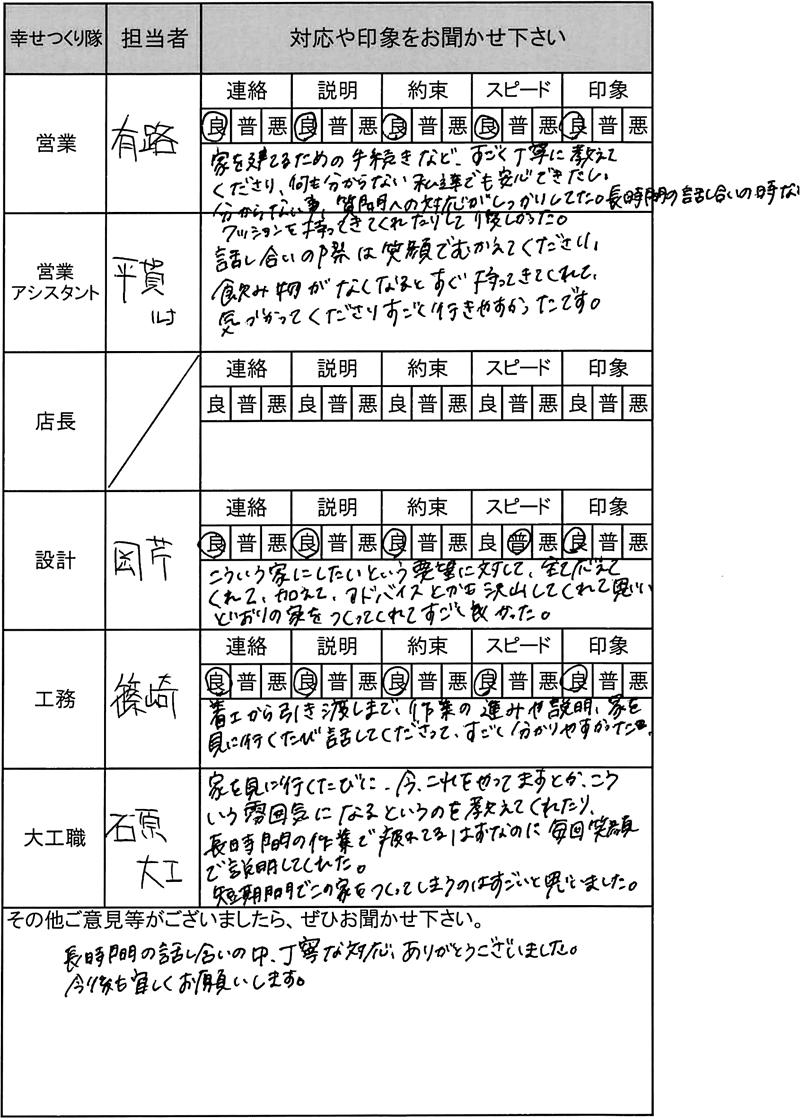 幸せつくり隊 担当者 対応や印象をお聞かせ下さい
連絡 説明 約束 スピード 印象
営業 有路 良 普 悪 良 普 悪 良 普 悪 良 普 悪 良 普 悪
家を建てるための手続きなど、すごく丁寧に教えて
くださり、何も分からない私達でも安心できたし、
分からない事、質問への対応がしっかりしてた。長時間の話し合いの時な
クッションを持ってきてくれたりして優しかった。
営業
アシスタント
平賀
話し合いの際は笑顔でむかえてください、
飲み物がなくなるとすぐ持ってきてくれて、
気づかってくださりすごく行きやすかったです。
連絡 説明 約束 スピード 印象
店長 良 普 悪 良 普 悪 良 普 悪 良 普 悪 良 普 悪
連絡 説明 約束 スピード 印象
設計 岡芹 良 普 悪 良 普 悪 良 普 悪 良 普 悪 良 普 悪
こういう家にしたいという要望に対して、全て応えて
くれて、加えて、アドバイスとかも沢山してくれて思い
どおりの家をつくってくれてすごく良かった。
連絡 説明 約束 スピード 印象
工務 篠崎 良 普 悪 良 普 悪 良 普 悪 良 普 悪 良 普 悪
着工から引き渡しまで、作業の進みや説明、家を
見に行くたび話してくださって、すごく分かりやすかった
大工職
石原
大工
家を見に行くたびに、今、これをやってますとか、こう
いう雰囲気になるというのを教えてくれたり、
長時間の作業で疲れてるはずなのに毎回笑顔
で説明してくれた。
短期間でこの家をつくってしまうのはすごいと思いました。
その他ご意見等がございましたら、ぜひお聞かせ下さい。
長時間の話し合いの中、丁寧な対応、ありがとうございました。
今後も宜しくお願いします。